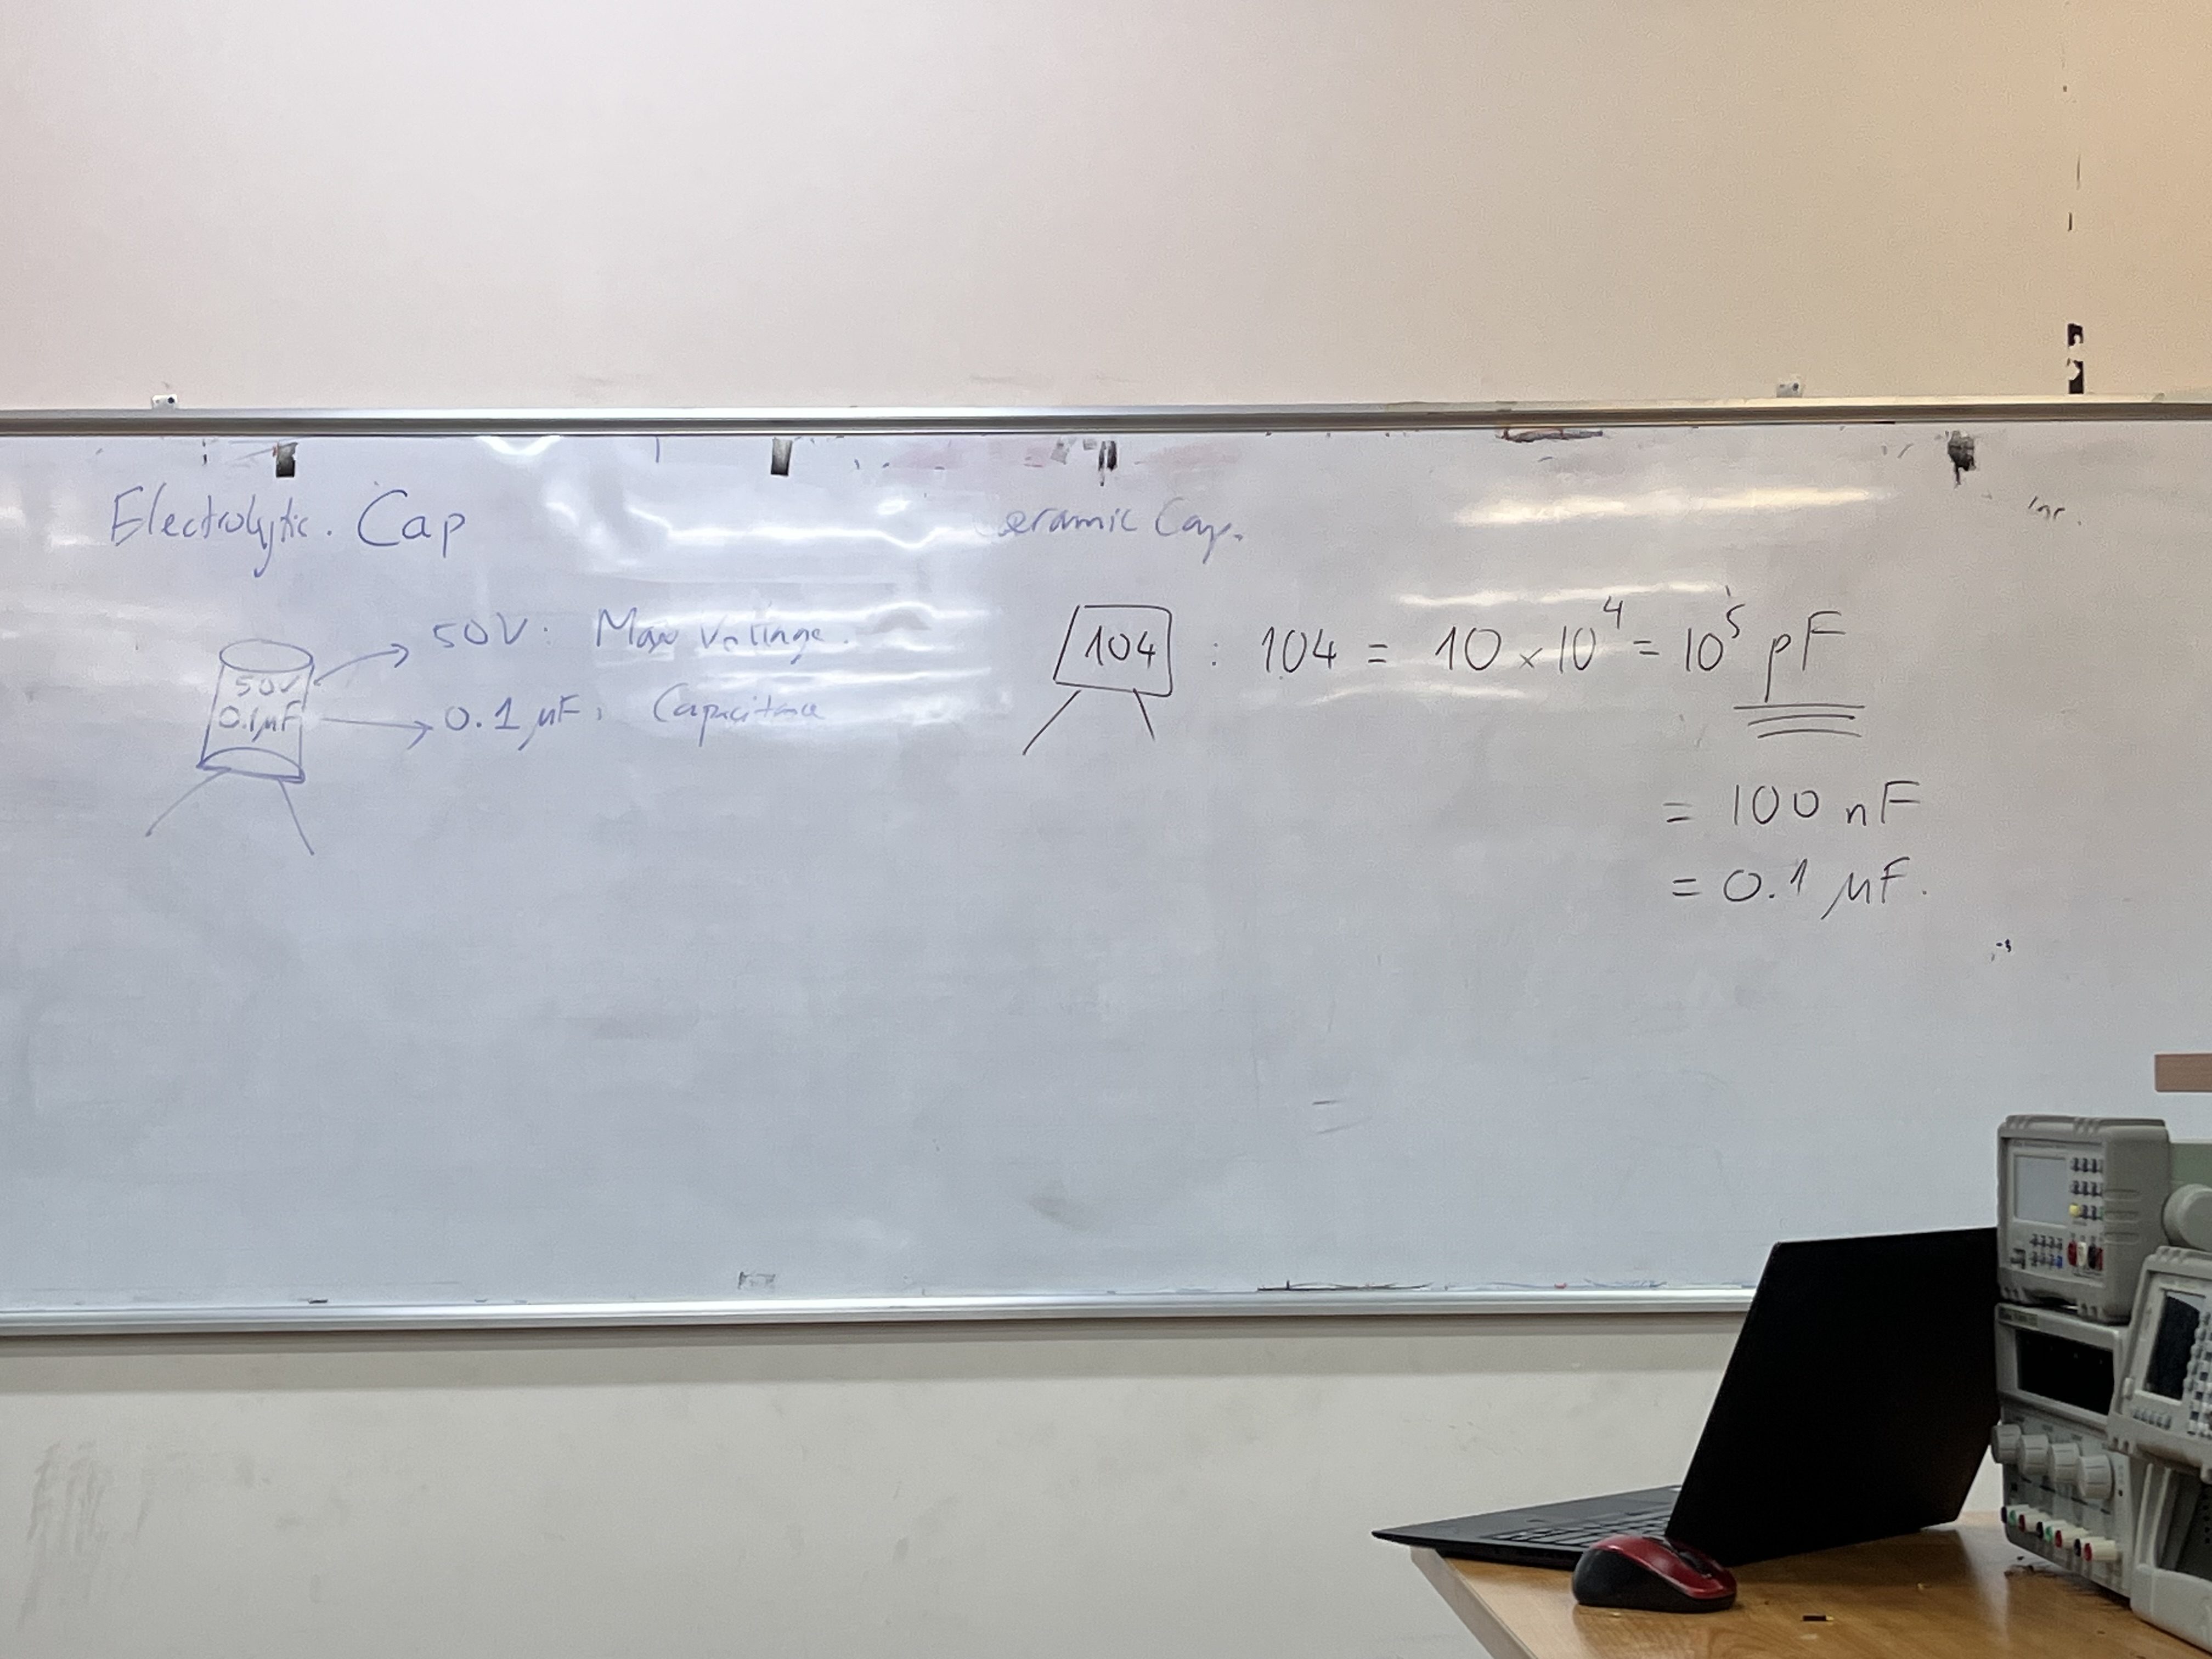 Electrolytic. Cap
50V
0.1µF
50V: Max Voltage.
0.1 µF: Capacitance
Ceramic Cap.
104 : 104 = 10 × 10⁴ = 10⁵ pF
= 100 nF
= 0.1 µF.